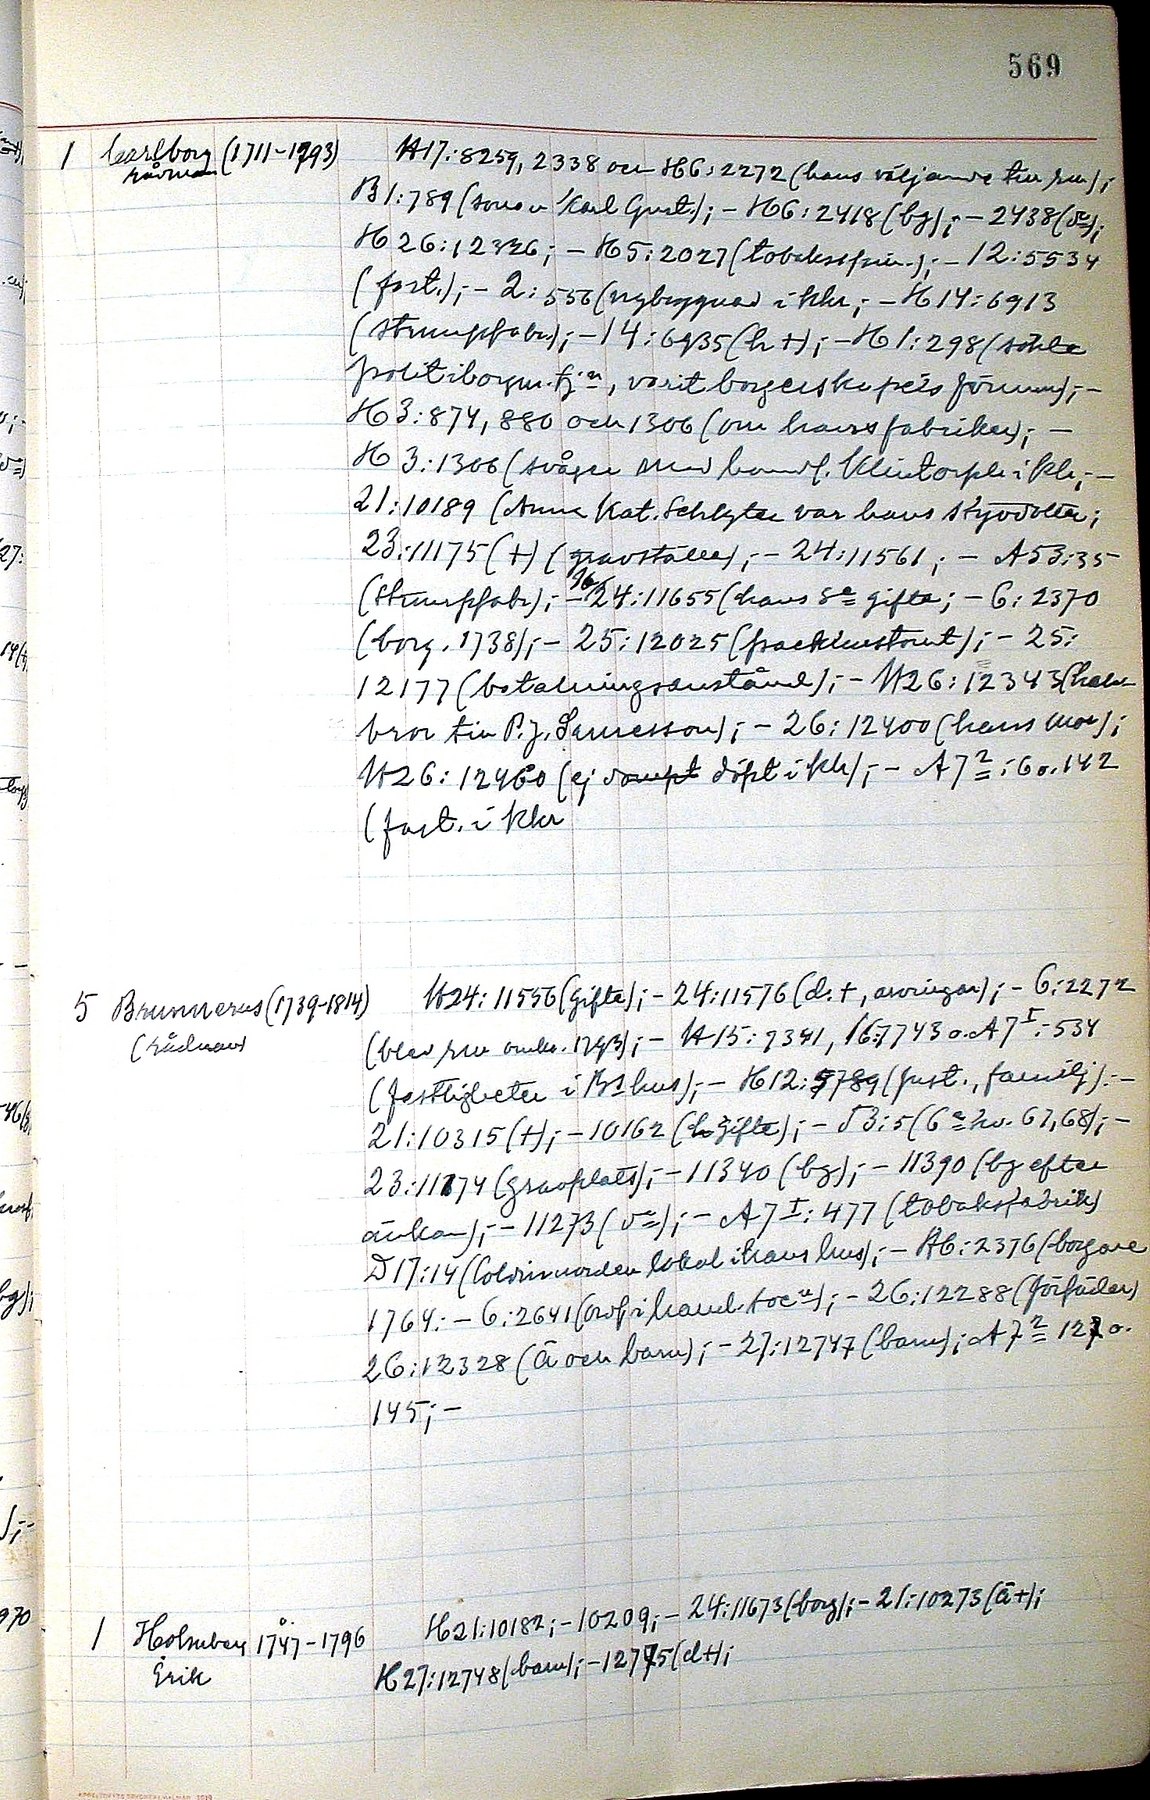 569
1 Carlborg (1711-1793) H17:8259, 2338 och H6:2272 (hans väljande till rm);
rådman
B1:789 (sonen Karl Gust.); - H6:2418 (bg); - 2438 (vn);
H26:12326; - H5:2027 (tobaksspinn.); - 12:5534
(fast.); - 2:556 (nybyggnad i khr; - H14:6913
(strumpfabr.); - 14:6935 (h +); - H1:298 (sökte
politiborgm. tjn, varit borgerskapets förman); -
H3:874, 880 och 1306 (om hans fabriker); -
H3:1306 (svåger med handl. Klintorph i Kh; -
21:10189 (Anna Kat. Schlyter var hans styvdotter;
23:11175 (+) (gravställe); - 24:11561; - A53:35
(strumpfabr); - 24:11655 (hans gifte; - 6:2370
(borg. 1738); - 25:12025 (packhustomt); - 25:
12177 (betalningsanstånd); - H26:12343 (halv
bror till P.J. Samesson); - 26:12400 (hans mor);
H26:12460 (ej döpt i kh); - A7 2:6 o. 142
(fast. i khr
5 Brunnerus (1739-1814) H24:11556 (gifte); - 24:11576 (d. +, arvingar); - 6:2272
(rådman) (blev rm omkr. 1793); - H15:7341, 16:7743 o. A7 I:534
(fastigheter i hus); - H12:5789 (fast., familj). -
21:10315 (+); - 10162 (gifte); - 53:5 (6 kv. 67,68); -
23:11174 (gravplats); - 11340 (bg); - 11390 (bg efter
änkan); - 11273 (vn); - A7 I:477 (tobaksfabrik)
D17:14 (Coldinuorden lokal i hans hus); - H6:2376 (borgare
1764. - 6:2641 (ordf i handl. socn); - 26:12288 (förfäder)
26:12328 (ä och barn); - 27:12747 (barn); A7 2 127 o.
145; -
1 Holmberg 1747-1796 H21:10182; - 10209; - 24:11673 (borg); - 21:10273 (ä +);
Erik H27:12748 (barn); - 12775 (d+);